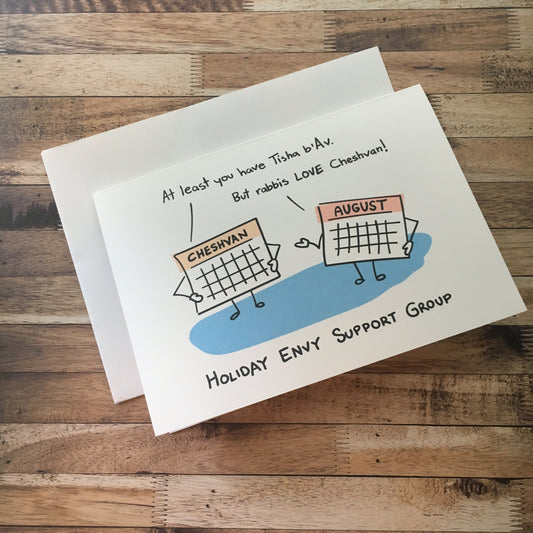 At least you have Tisha b'Av.
But rabbis LOVE Cheshvan!
CHESHVAN
AUGUST
HOLIDAY ENVY SUPPORT GROUP